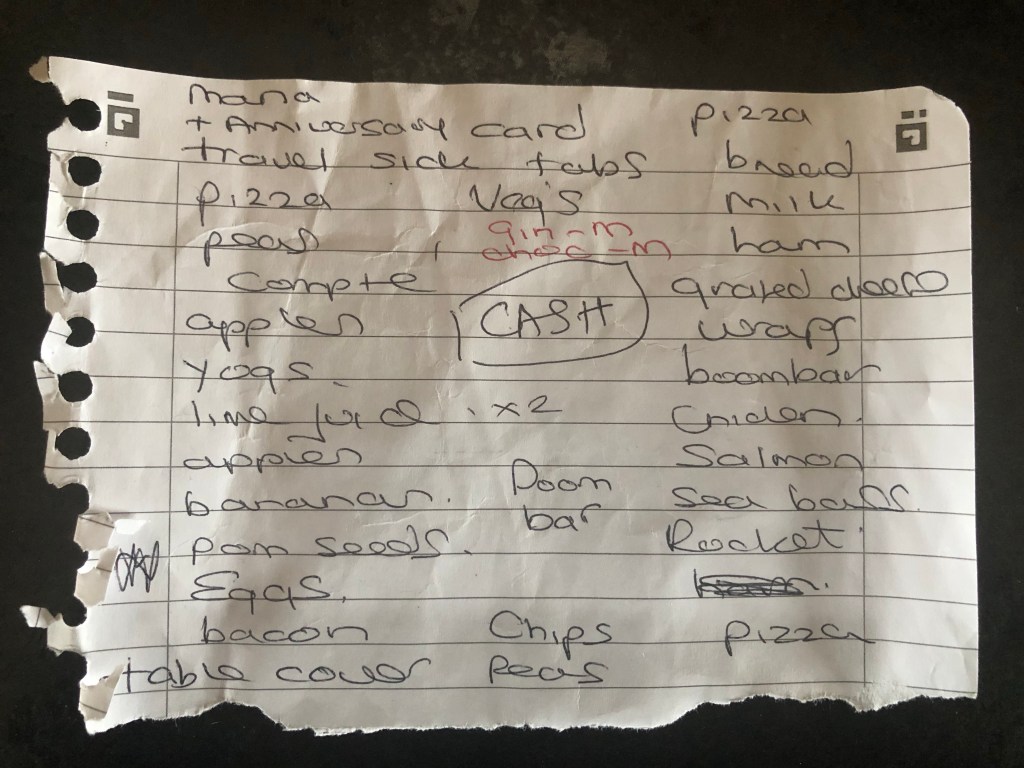 mana
+ Anniversary card pizza
travel sick tabs bread
pizza Veg's milk
peas gin - m ham
choc - m
Compte grated cheese
apples CASH wraps
yogs. boombar
lime juice . x2 Chicken.
apples Salmon
bananas. Doom sea bass.
bar
pom seeds. Rocket
Eggs.
bacon Chips pizza
table cover Peas